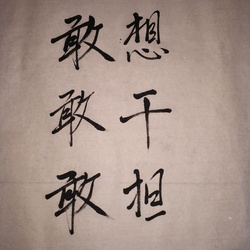 敢想
敢干
敢担